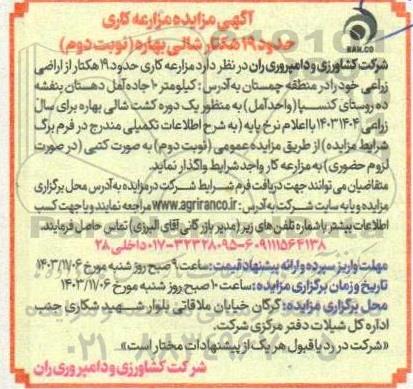 RAN.CO
آگهی مزایده مزارعه کاری
حدود ۱۹ هکتار شالی بهاره (نوبت دوم)
شرکت کشاورزی و دامپروری ران در نظر دارد مزارعه کاری حدود ۱۹ هکتار از اراضی
زراعی خود را در منطقه چمستان به آدرس: کیلومتر ۱۰ جاده آمل دهستان بنفشه
ده روستای کنسپا (واحد آمل) به منظور یک دوره کشت شالی بهاره برای سال
زراعی ۱۴۰۴-۱۴۰۳ با اعلام نرخ پایه (به شرح اطلاعات تکمیلی مندرج در فرم برگ
شرایط مزایده) از طریق مزایده عمومی (نوبت دوم) به صورت کتبی (در صورت
لزوم حضوری) به مزارعه کار واجد شرایط واگذار نماید.
متقاضیان می توانند جهت دریافت فرم شرایط شرکت در مزایده به آدرس محل برگزاری
مزایده و یا به سایت شرکت به آدرس: www.agriranco.ir مراجعه نمایند و یا جهت کسب
اطلاعات بیشتر با شماره تلفن های زیر (مدیر بازرگانی آقای البرزی) تماس حاصل فرمایند.
۰۹۱۱۱۵۶۴۱۳۸-۶-۰۱۷-۳۲۳۲۸۰۹۵ داخلی ۲۸
مهلت واریز سپرده و ارائه پیشنهاد قیمت: ساعت ۹ صبح روز شنبه مورخ ۱۴۰۳/۱۱/۰۶
تاریخ و زمان برگزاری مزایده: ساعت ۱۰ صبح روز شنبه مورخ ۱۴۰۳/۱۱/۰۶
محل برگزاری مزایده: گرگان خیابان ملاقاتی بلوار شهید شکاری جنب
اداره کل شیلات دفتر مرکزی شرکت.
«شرکت در رد یا قبول هر یک از پیشنهادات مختار است»
شرکت کشاورزی و دامپروری ران